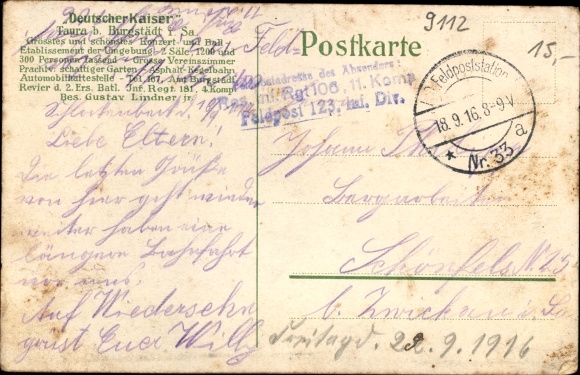 "Deutscher Kaiser"
Taura b. Burgstädt i. Sa.
Grösstes und schönstes Konzert- und Ball-
Etablissement der Umgebung. 2 Säle, 1200 und
300 Personen fassend – Grosses Vereinszimmer
Prachtv. schattiger Garten – Asphalt-Kegelbahn
Automobilhaltestelle – Tel. 187, Amt Burgstädt
Revier d. 2. Ers. Batl. Inf. Regt. 181, 4. Komp
Bes. Gustav Lindner jr.
Feld-
Postkarte
9112
15,-
adresse des Absenders:
Rgt 106, 11. Komp.
Feldpost 123. Inf. Div.
Feldpoststation
18.9.16. 8-9V
* Nr. 33 a
Liebe Eltern!
Die letzten Grüße
von hier geht wieder
weiter haben eine
längere Bahnfahrt
vor uns.
Auf Wiedersehn
grüst Euch Willy
Johann
Bergarbeiter
Schönfels N. 25
b. Zwickau i. Sa
Freitag d. 22.9.1916